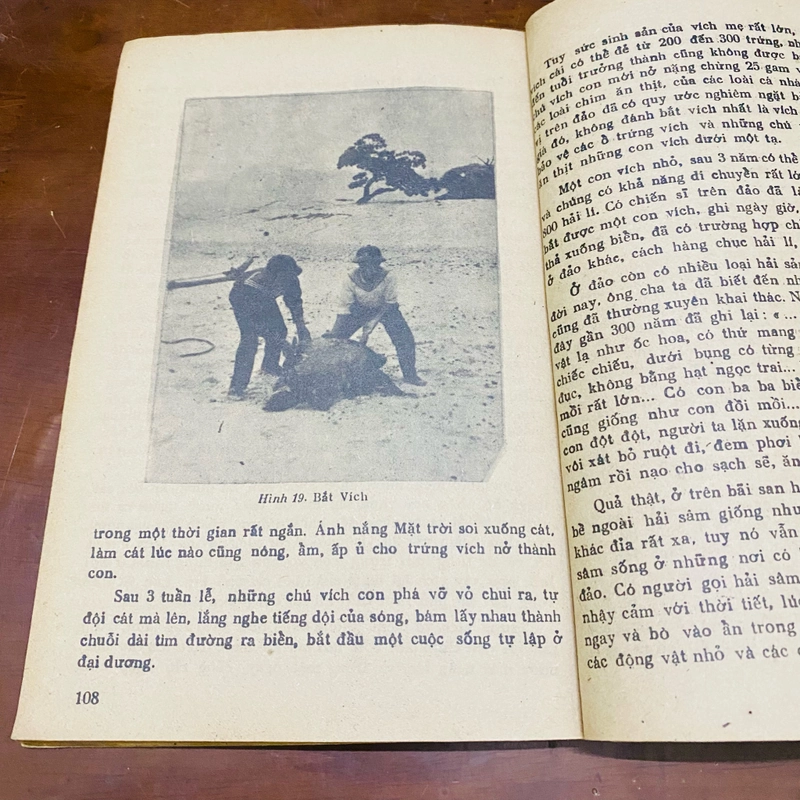 Hình 19. Bắt Vích
trong một thời gian rất ngắn. Ánh nắng Mặt trời soi xuống cát,
làm cát lúc nào cũng nóng, ẩm, ấp ủ cho trứng vích nở thành
con.
Sau 3 tuần lễ, những chú vích con phá vỡ vỏ chui ra, tự
đội cát mà lên, lắng nghe tiếng dội của sóng, bám lấy nhau thành
chuỗi dài tìm đường ra biển, bắt đầu một cuộc sống tự lập ở
đại dương.
108
Tuy sức sinh sản của vích mẹ rất lớn,
vích cái có thể đẻ từ 200 đến 300 trứng,
đến tuổi trưởng thành cũng không được
chú vích con mới nở nặng chừng 25 gam
các loài chim ăn thịt, của các loài cá
vị trên đảo đã có quy ước nghiêm ngặt
giá đó, không đánh bắt vích nhất là vích
bảo vệ các ổ trứng vích và những chú
ăn thịt những con vích dưới một tạ.
Một con vích nhỏ, sau 3 năm có thể
và chúng có khả năng di chuyển rất
800 hải lí. Có chiến sĩ trên đảo đã
bắt được một con vích, ghi ngày giờ,
thả xuống biển, đã có trường hợp
ở đảo khác, cách hàng chục hải lí,
Ở đảo còn có nhiều loại hải
đời nay, ông cha ta đã biết đến
cũng đã thường xuyên khai thác.
đây gần 300 năm đã ghi lại: « ...
vật lạ như ốc hoa, có thứ mang
chiếc chiếu, dưới bụng có từng
đục, không bằng hạt ngọc trai...
mồi rất lớn... Có con ba ba
cũng giống như con đồi mồi...
con đột đột, người ta lặn xuống
vôi xát bỏ ruột đi, đem phơi
ngâm rồi nạo cho sạch sẽ, ăn
Quả thật, ở trên bãi san
bề ngoài hải sâm giống
khác đỉa rất xa, tuy nó vẫn
sâm sống ở những nơi có
đảo. Có người gọi hải
nhạy cảm với thời tiết,
ngay và bò vào ẩn trong
các động vật nhỏ và các